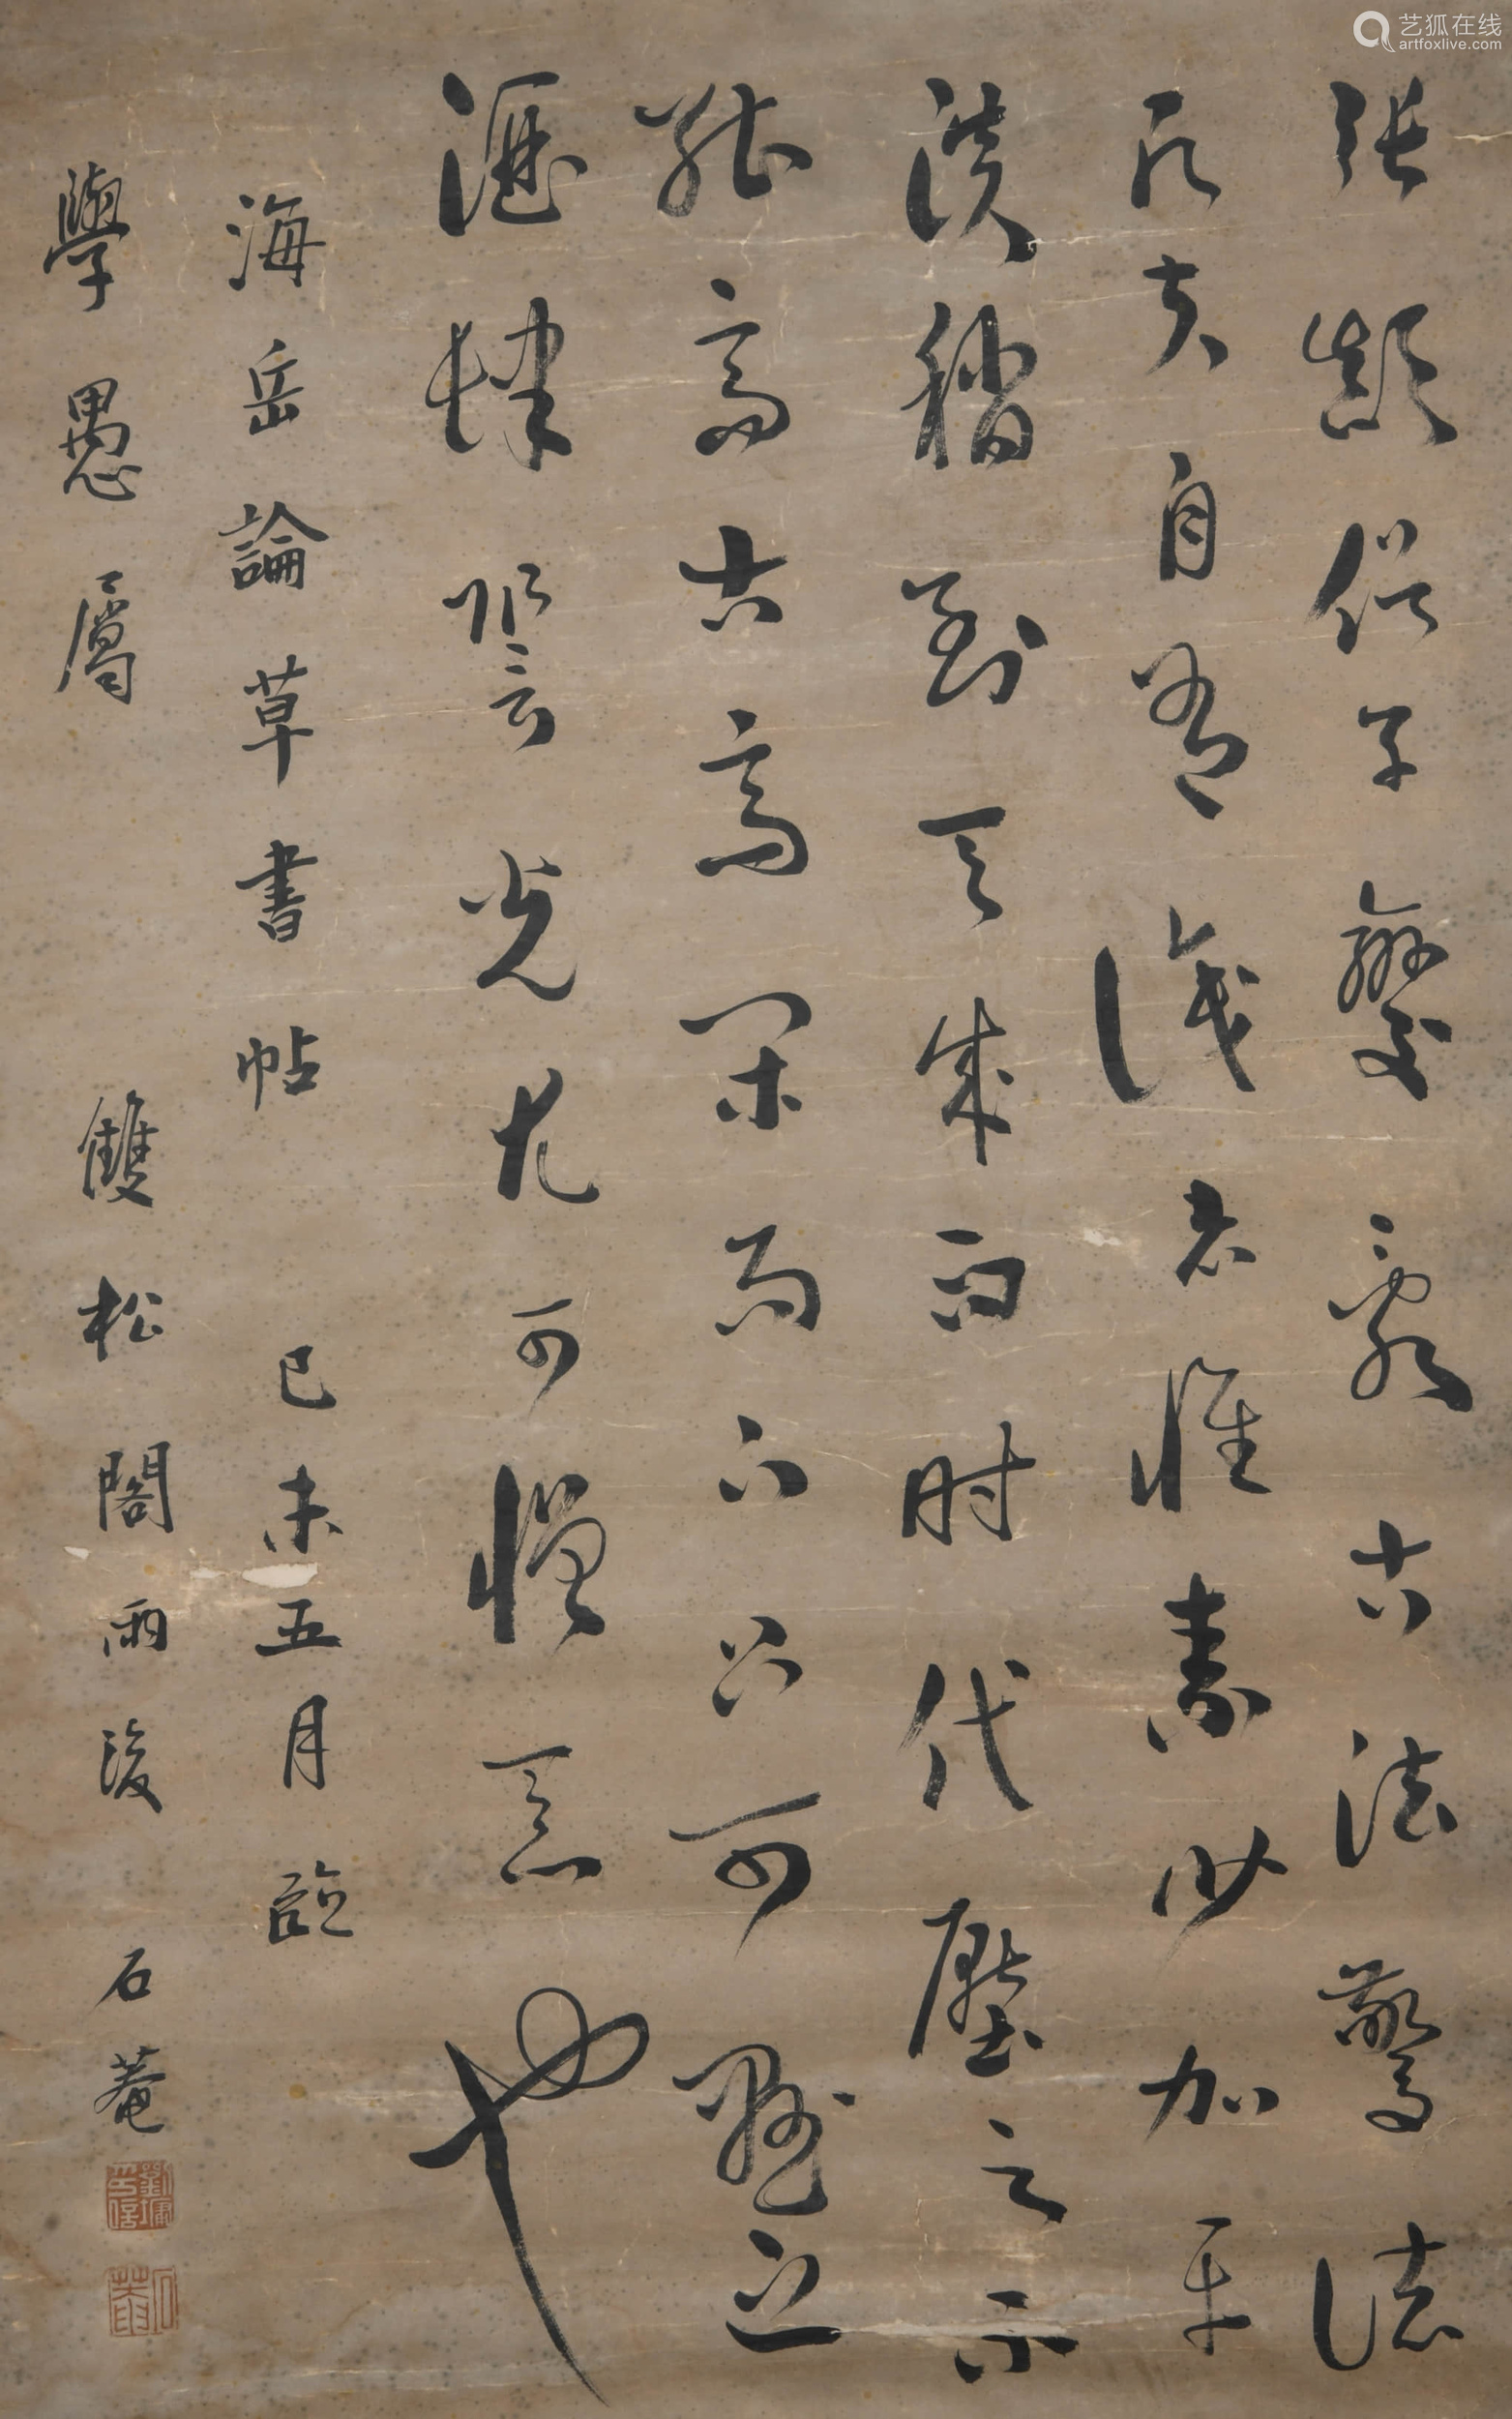 張顛俗子變亂古法驚諸
凡夫自有識者懷素少加平
淡稍到天成而时代壓之不
能高古高閑而下只可懸之
酒肆䛒光尤可憎惡也
海岳論草書帖 己未五月臨
學愚屬 雙松閣雨後 石菴
劉墉印信
石菴
艺狐在线
artfoxlive.com